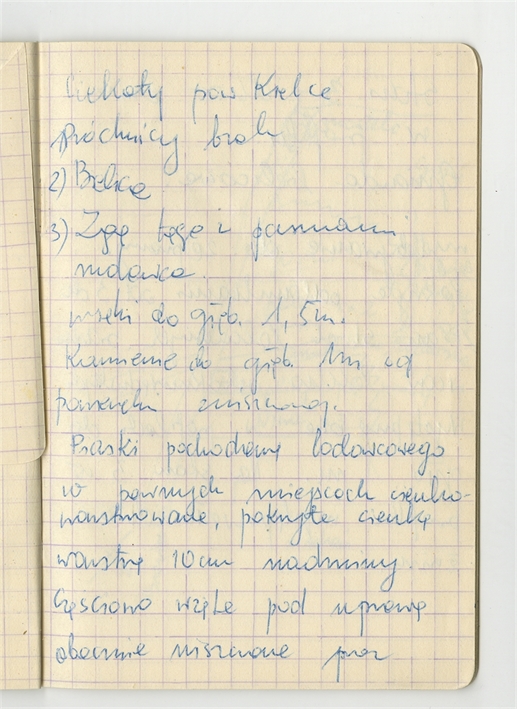 Ciekoty pow Kielce
Próchnicy brak
2) Bielica
3) Zgę tęgo i pasmami
rudawca.
piaski do głęb. 1,5m.
Kamienie do głęb. 1m od
powierzchni zniszczonej.
Piaski pochodzenia lodowcowego
w pewnych miejscach cienko-
warstwowane, pokryte cienką
warstwą 10cm nadziarniny.
Częściowo wzięte pod uprawę
obecnie niszczone przez